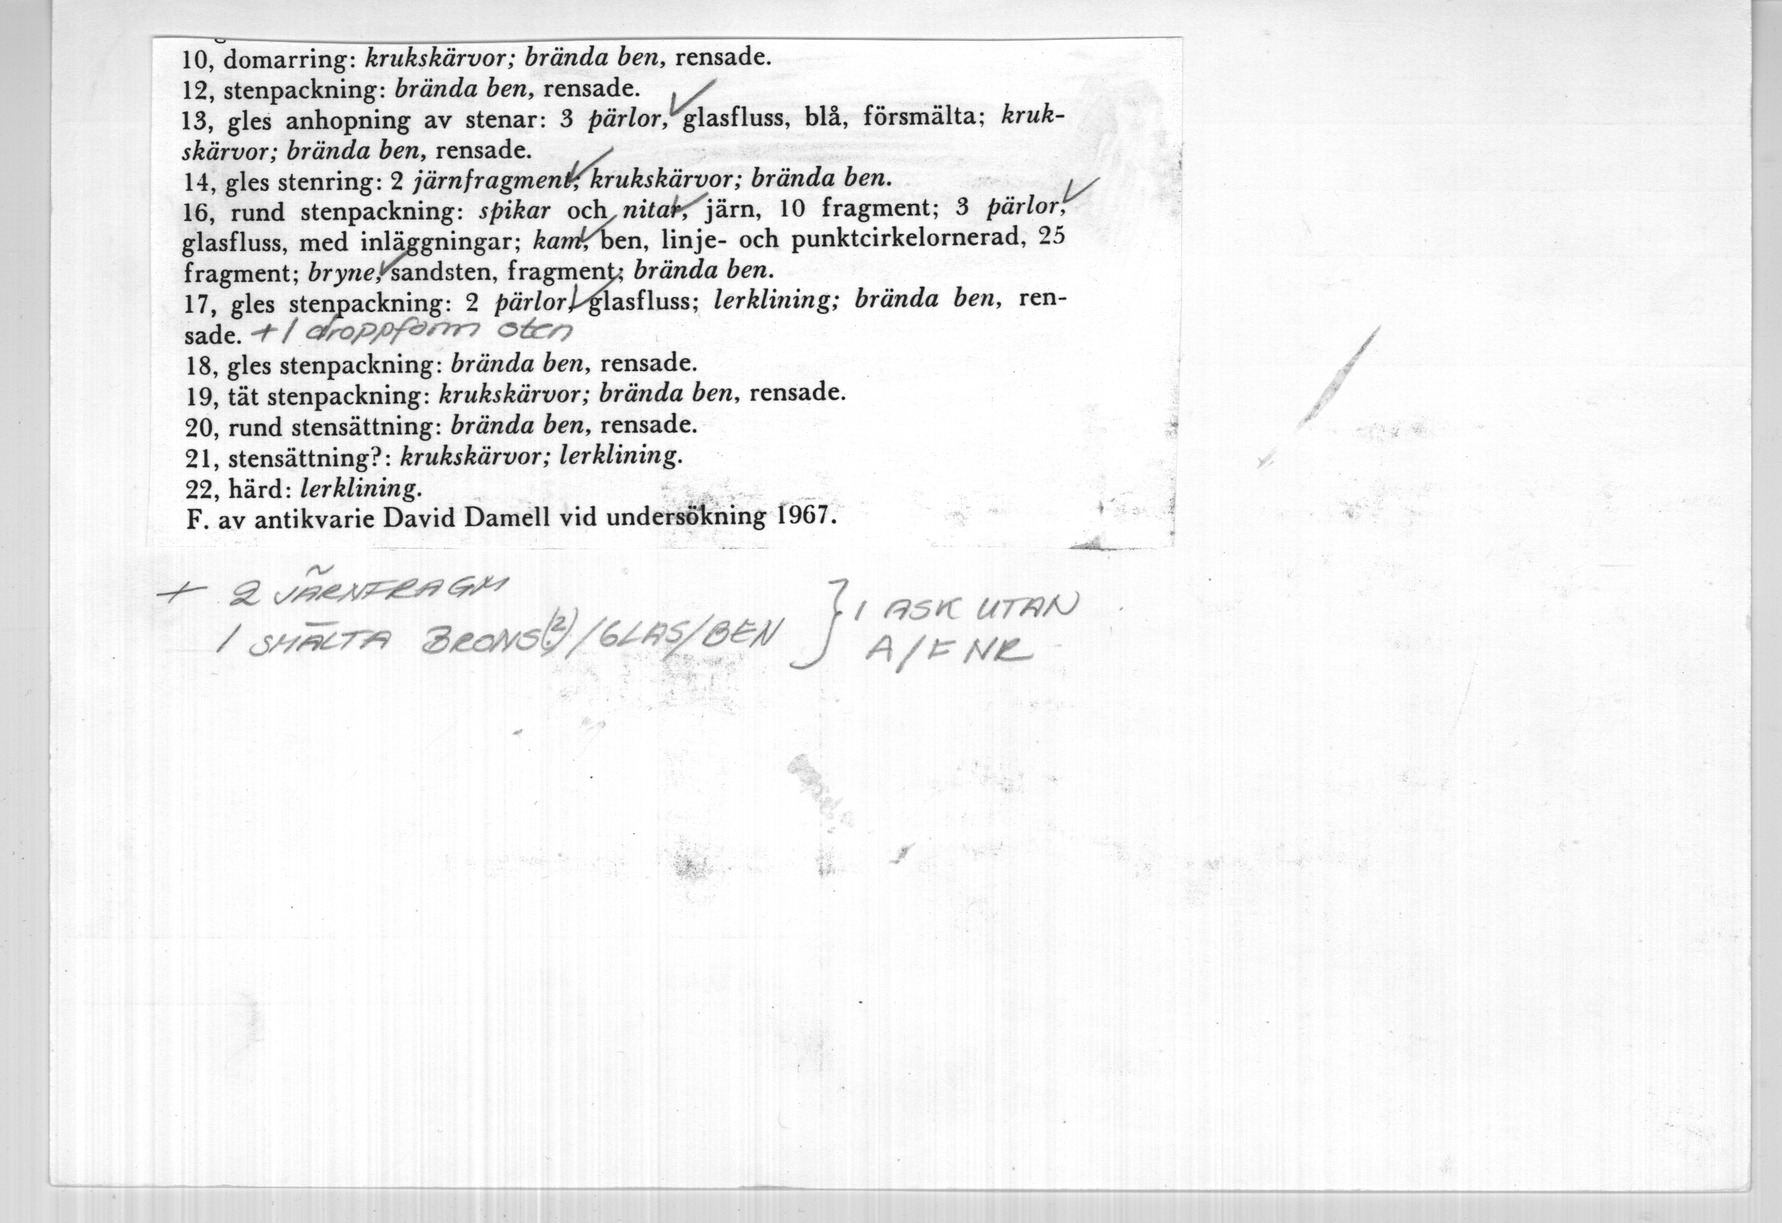 10, domarring: krukskärvor; brända ben, rensade.
12, stenpackning: brända ben, rensade.
13, gles anhopning av stenar: 3 pärlor, glasfluss, blå, försmälta; kruk-
skärvor; brända ben, rensade.
14, gles stenring: 2 järnfragment; krukskärvor; brända ben.
16, rund stenpackning: spikar och nitar, järn, 10 fragment; 3 pärlor,
glasfluss, med inläggningar; kam, ben, linje- och punktcirkelornerad, 25
fragment; bryne, sandsten, fragment; brända ben.
17, gles stenpackning: 2 pärlor, glasfluss; lerklining; brända ben, ren-
sade. + 1 droppform sten
18, gles stenpackning: brända ben, rensade.
19, tät stenpackning: krukskärvor; brända ben, rensade.
20, rund stensättning: brända ben, rensade.
21, stensättning?: krukskärvor; lerklining.
22, härd: lerklining.
F. av antikvarie David Damell vid undersökning 1967.
+ 2 JÄRNFRAGM
1 SMÄLTA BRONS(?)/GLAS/BEN } 1 ASK UTAN
A/F NR